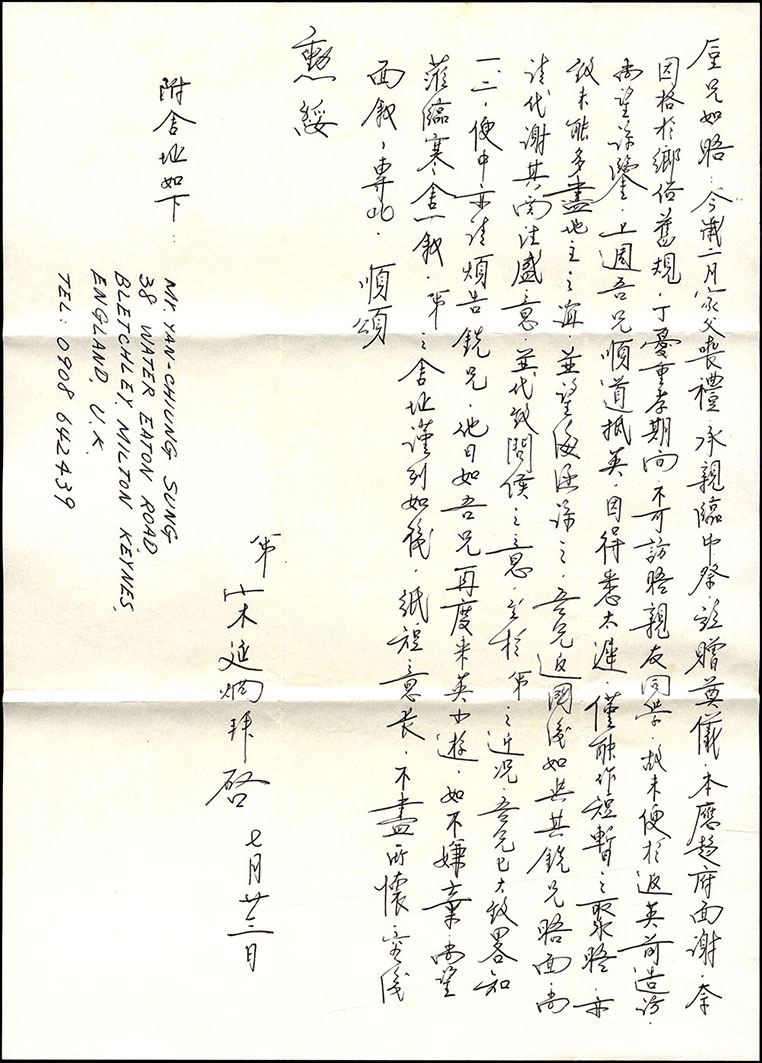 垕兄如晤：今歲一月家父喪禮承親臨弔祭，並贈奠儀，本應趨府面謝，奈
因格於鄉俗舊規，丁憂重孝期間，不可訪晤親友同學，故未便於返英前造訪，
尚望諒鑒，上週吾兄順道抵英，因得悉太遲，僅能作短暫之聚晤，亦
致未能多盡地主之誼，並望海涵諒之，吾兄返國後如與其銑兄晤面，尚
請代謝其關注盛意，並代致問候之意，至於弟之近況，吾兄已大致略知
一、二，便中亦請煩告銑兄，他日如吾兄再度來英少遊，如不嫌棄，尚望
蒞臨寒舍一敘，弟之舍址謹列如後，紙短意長，不盡所懷，容後
面敘，專此，順頌
勳綏
弟 宋延炯 拜啓 七月廿三日
附舍址如下：
MR. YAN-CHIUNG SUNG
38 WATER EATON ROAD
BLETCHLEY, MILTON KEYNES,
ENGLAND, U.K.
TEL: 0908 642439